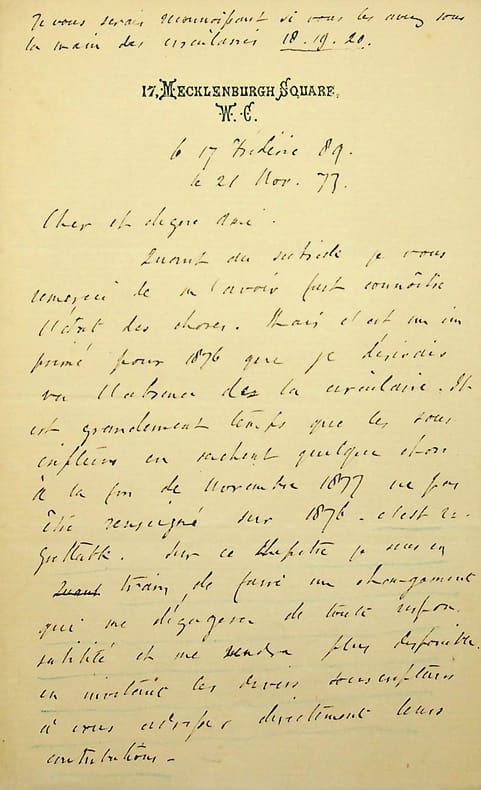 Je vous serais reconnaissant si vous les avez sous
la main des circulaires 18. 19. 20.
17, MECKLENBURGH SQUARE,
W. C.
le 17 Frédéric 89.
le 21 Nov. 77.
Cher et digne ami.
Quant au subside je vous
remercie de m'avoir fait connaître
l'état des choses. Mais c'est un im
primé pour 1876 que je désirais
vu l'absence de la circulaire. Il
est grandement temps que les sous
cripteurs en sachent quelque chose
à la fin de Novembre 1877 ne pas
être renseigné sur 1876 - c'est re-
grettable. Sur ce chapitre je suis en
Quant train de faire un changement
qui me dégagera de toute respon
sabilité et me rendra plus disponible.
en invitant les divers souscripteurs
à vous adresser directement leurs
contributions -